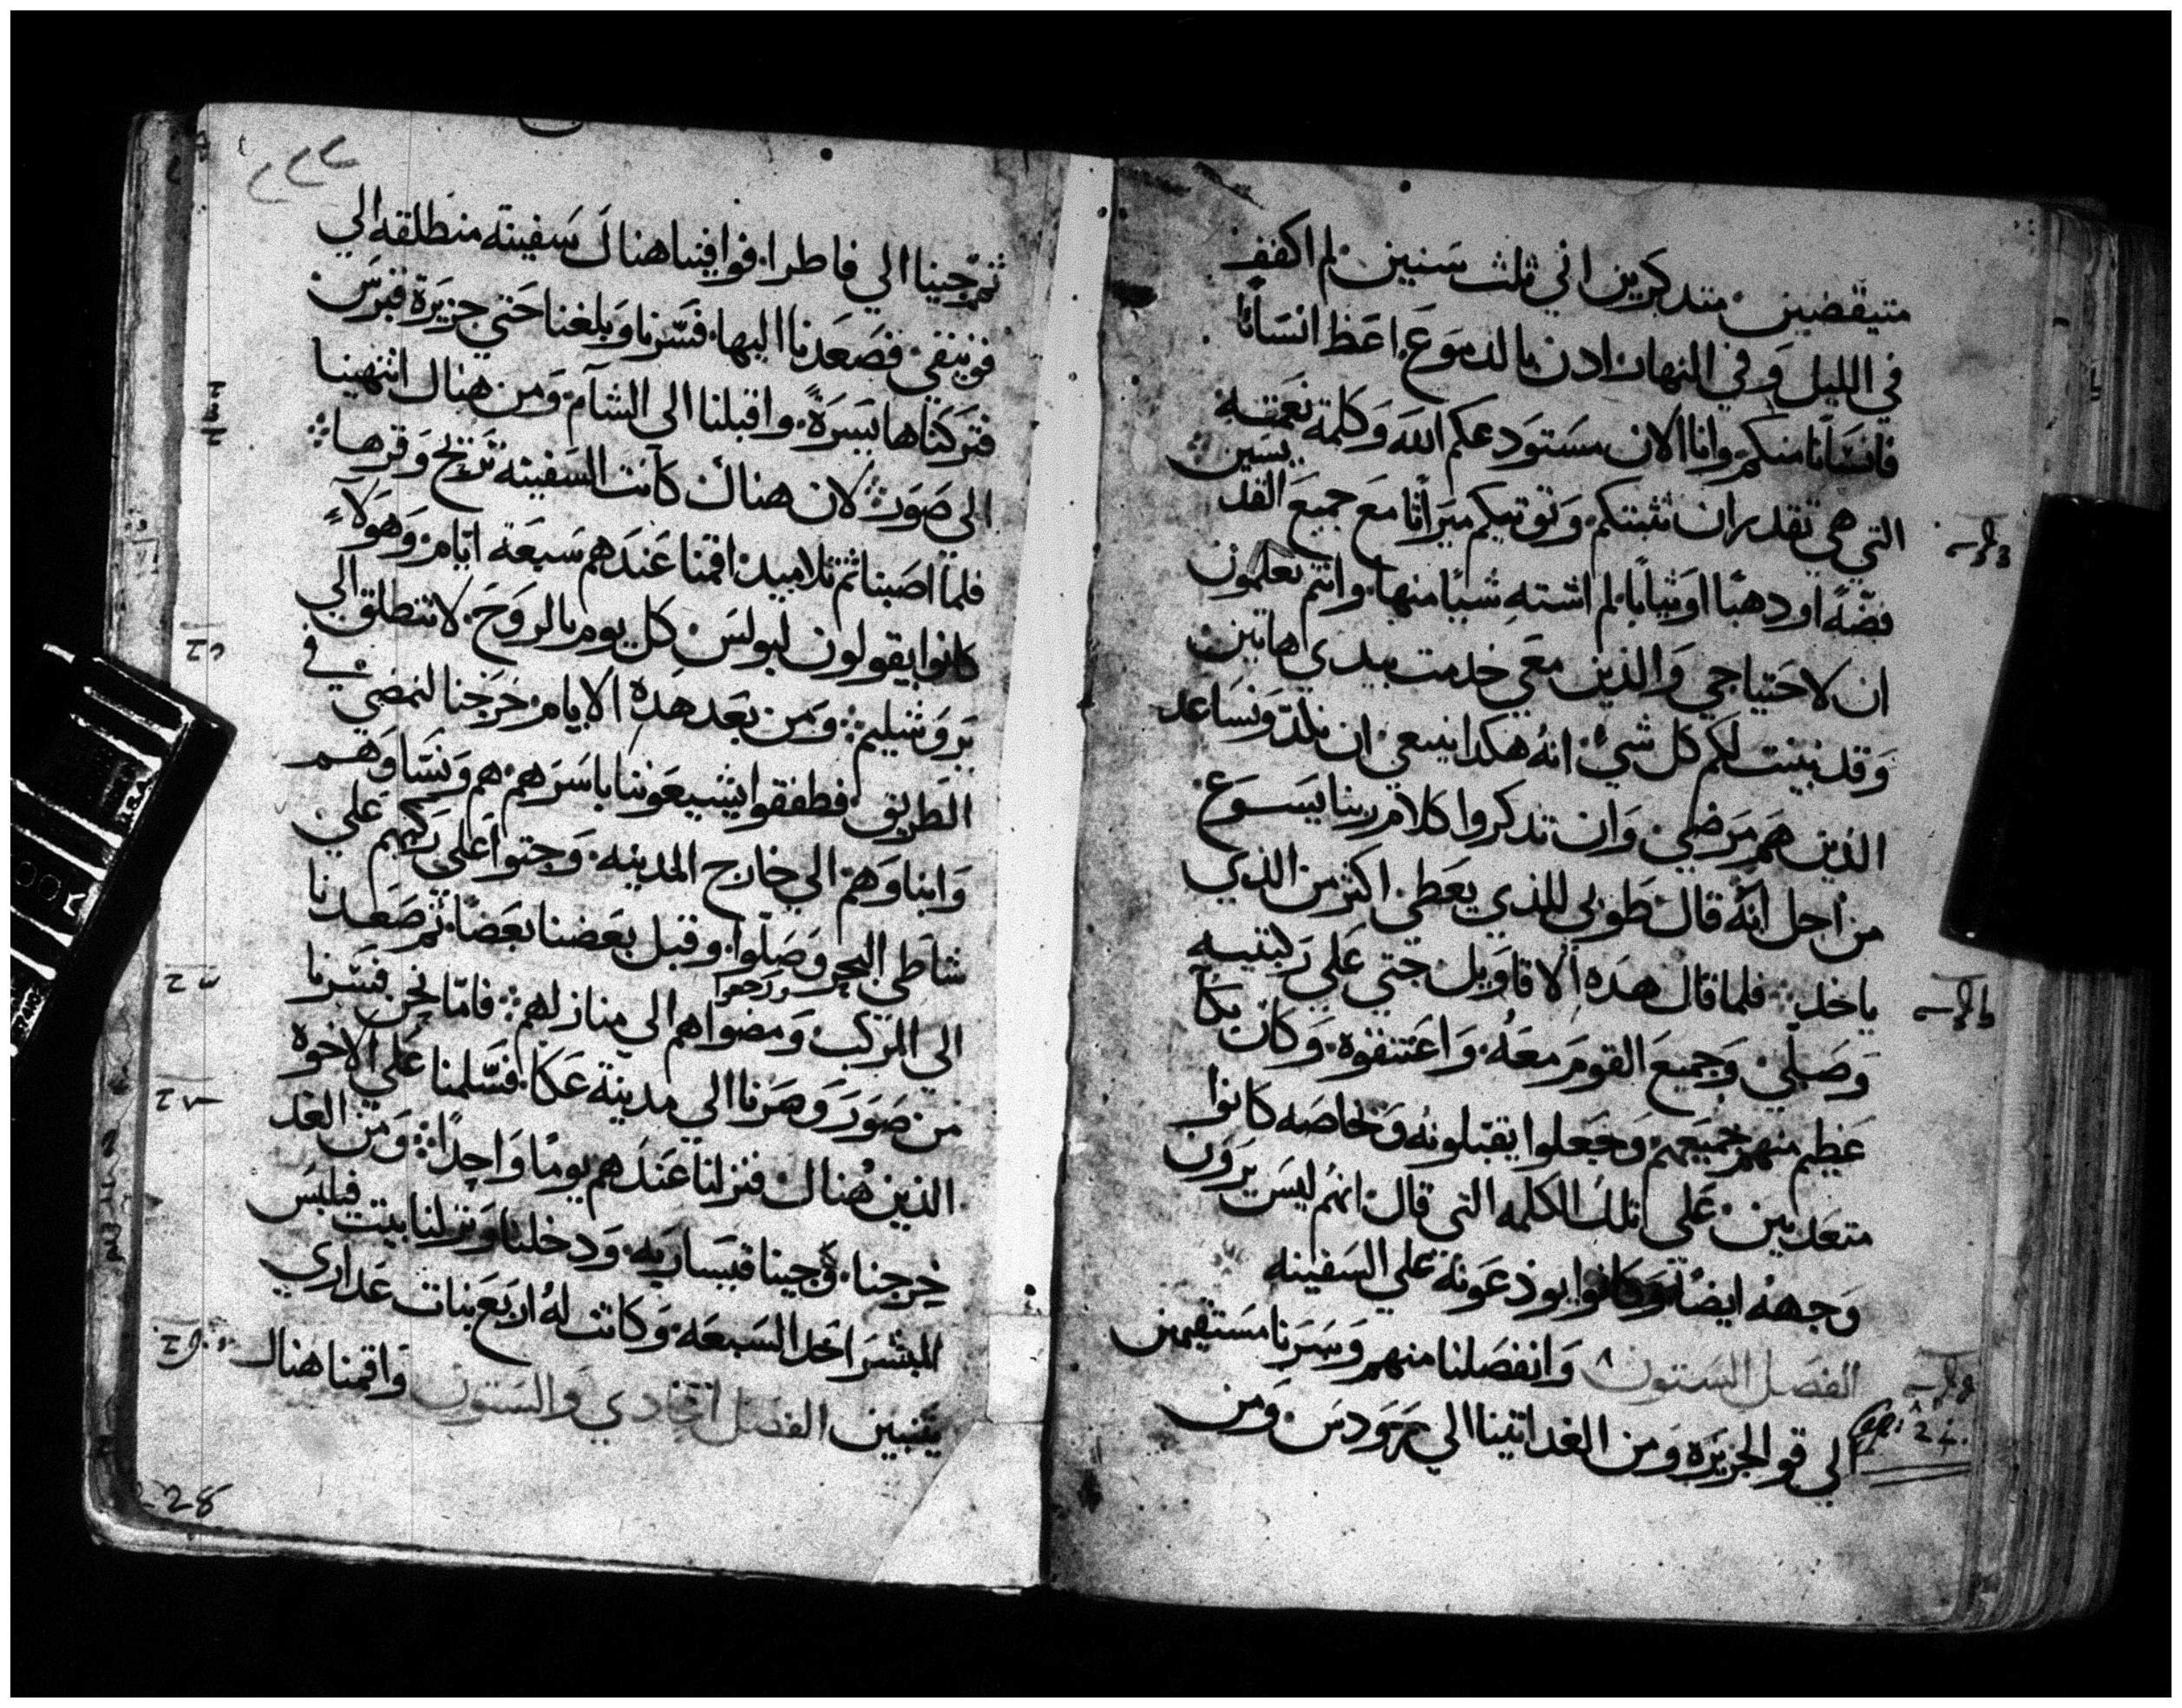 متيقضين متدكرين اني ثلث سنين لم اكفف
في الليل وفي النهار ادن بالدموع اعظ انسانًا
فانسانًا منكم وانا الان مستودعكم الله وكلمة نعمته
التي هي تقدر ان تثبتكم وتوتيكم ميراثًا مع جميع القديسين
فضّةً او دهبًا او ثيابًا لم اشتهِ شيئًا منها وانتم تعلمون
ان لاحتياجي والذين معي خدمت بيدى هاتين
وقد بينت لكم كل شيٍ انه هكدا ينبغي ان نلدّ ونساعد
الذين هم مرضي وان تدكروا كلام ربنا يسوع
من اجل انه قال طوبي للذي يعطي اكثر من الذي
ياخد فلما قال هده الاقاويل جتي علي ركبتيه
وصلي وجميع القوم معه واعتنقوه وكان بكا
عظيم منهم جميعهم وجعلوا يقبّلونه وبخاصه كانوا
متعدبين علي تلك الكلمه التي قال انهم ليس يرون
وجهه ايضًا وكانوا يودعونه علي السفينه
الفصل الستون وانفصلنا منهم وسرنا مستقيمين
الي قو الجزيره ومن الغد اتينا الي رودس ومن
Cap: 24.
ثم جينا الي فاطرا فوافينا هناك سفينه منطلقه الي
فوينقي فصعدنا اليها فسّرنا وبلغنا حتي جزيرة قبرس
فتركناها يسرةً واقبلنا الى الشآم ومن هناك انتهينا
الى صور لان هناك كانت السفينه تريح وقرها
فلما اصبنا ثم تلاميد اقمنا عندهم سبعة ايّام وهولاءِ
كانوا يقولون لبولس كل يوم بالروح لا تنطلق الي
يروشليم ومن بعد هده الايام خرجنا لنمضي في
الطريق فطفقوا يشيعوننا باسرهم هم ونساوهم
وابناوهم الي خارج المدينه وجتوا علي ركبهم علي
شاطي البحر وصلّوا وقبل بعضنا بعضًا ثم صعدنا
الي المركب ومضوا هم الي منازلهم فامّا نحن فسّرنا
ورجعوا
من صور وصرنا الي مدينة عكا فسّلمنا علي الاخوه
الذين هناك فنزلنا عندهم يومًا واحدًا ومن الغد
خرجنا وجينا قيساريه ودخلنا ونزلنا بيت فيلبس
المبشر احد السبعه وكانت له اربع بنات عداري
يتنبين الفصل الحادي والستون واقمنا هناك
228